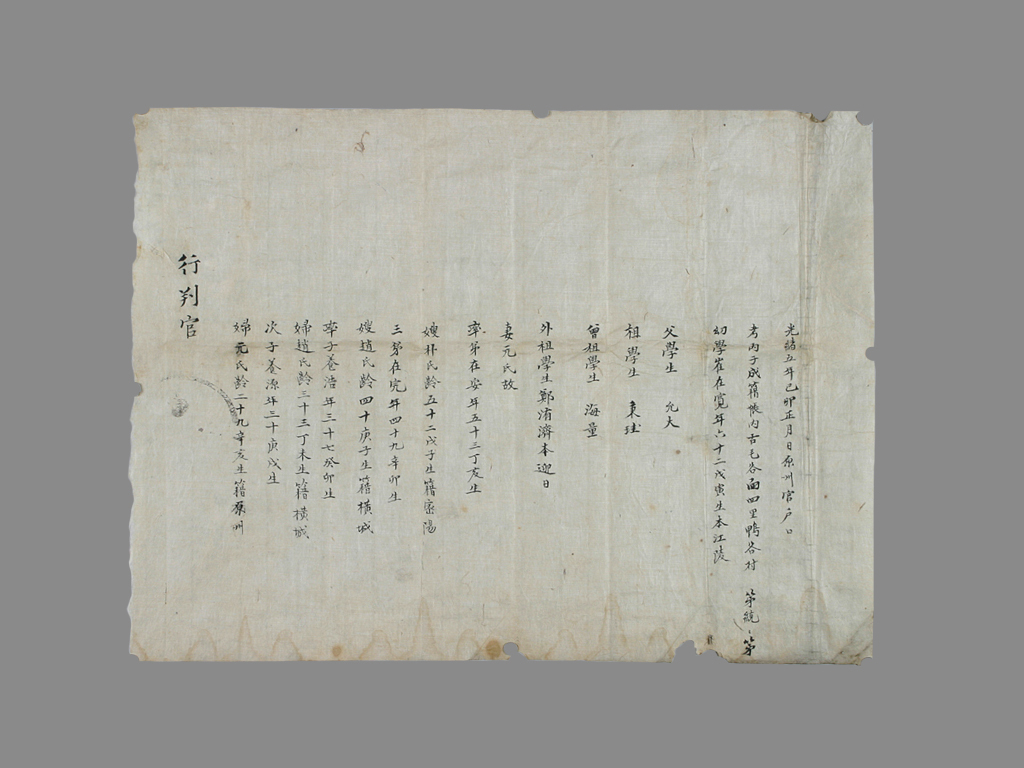 光緖五年己卯正月日原州官戶口
考丙子成籍帳內古毛谷面四里鴨谷村 第統 第
幼學崔在寬年六十二戊寅生本江陵
父學生 允大
祖學生 秉珪
曾祖學生 海量
外祖學生鄭洧濟本迎日
妻元氏故
率弟在安年五十三丁亥生
嫂朴氏齡五十二戊子生籍密陽
三弟在完年四十九辛卯生
嫂趙氏齡四十庚子生籍橫城
率子養浩年三十七癸卯生
婦趙氏齡三十三丁未生籍橫城
次子養源年三十庚戌生
婦元氏齡二十九辛亥生籍原州
行判官